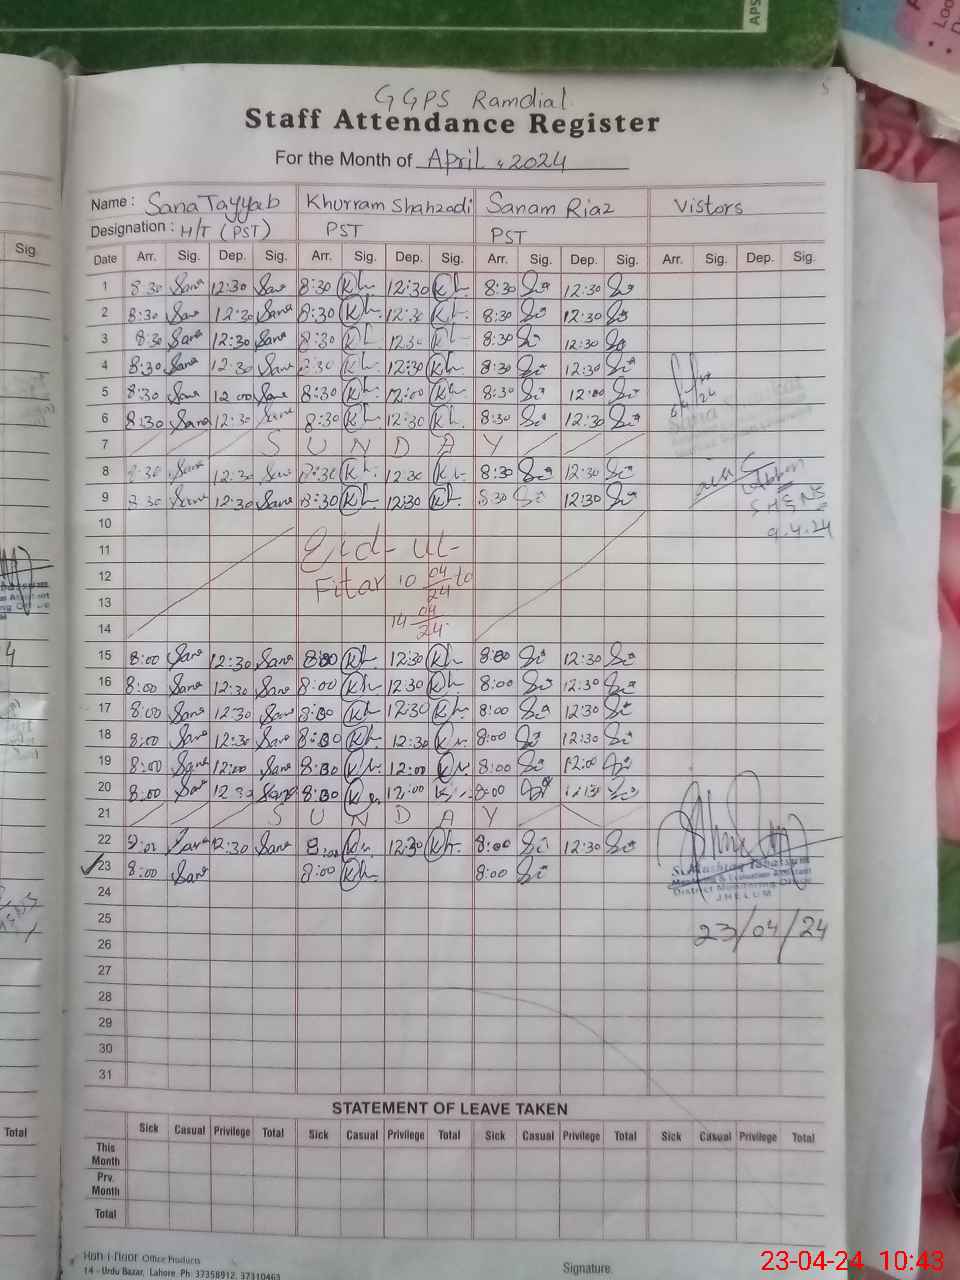 APS
5
GGPS Ramdial
Staff Attendance Register
For the Month of April, 2024
Name: Sana Tayyab Khurram Shahzadi Sanam Riaz Vistors
Designation: H/T (PST) PST PST
Sig.
Date Arr. Sig. Dep. Sig. Arr. Sig. Dep. Sig. Arr. Sig. Dep. Sig. Arr. Sig. Dep. Sig.
1 8:30 Sana 12:30 Sana 8:30 Kh. 12:30 Kh. 8:30 12:30
2 8:30 Sana 12:30 Sana 8:30 Kh. 12:30 Kh. 8:30 12:30
3 8:30 Sana 12:30 Sana 8:30 Kh. 12:30 Kh. 8:30 12:30
4 8:30 Sana 12:30 Sana 8:30 Kh. 12:30 Kh. 8:30 12:30
5 8:30 Sana 12:00 Sana 8:30 Kh. 12:00 Kh. 8:30 12:00
6 8:30 Sana 12:30 Sana 8:30 Kh. 12:30 Kh. 8:30 12:30
7 S U N D A Y
8 8:30 Sana 12:30 Sana 8:30 Kh. 12:30 Kh. 8:30 12:30
9 8:30 Sana 12:30 Sana 8:30 Kh. 12:30 Kh. 8:30 12:30
9.4.24
10
11 Eid-ul-
12 Fitar 10 04/24 to
13
14 14 04/24
15 8:00 Sana 12:30 Sana 8:00 Kh. 12:30 Kh. 8:00 12:30
16 8:00 Sana 12:30 Sana 8:00 Kh. 12:30 Kh. 8:00 12:30
17 8:00 Sana 12:30 Sana 8:00 Kh. 12:30 Kh. 8:00 12:30
18 8:00 Sana 12:30 Sana 8:00 Kh. 12:30 Kh. 8:00 12:30
19 8:00 Sana 12:00 Sana 8:00 Kh. 12:00 Kh. 8:00 12:00
20 8:00 Sana Sana 8:00 Kh. 12:00 8:00
21 S U N D A Y
22 Sana 12:30 Sana 8:00 Kh. 12:30 Kh. 8:00 12:30
23 8:00 Sana 8:00 Kh. 8:00
Monitoring & Evaluation Assistant
District Monitoring Office
JHELUM
24
25 23/04/24
26
27
28
29
30
31
STATEMENT OF LEAVE TAKEN
Total
Sick Casual Privilege Total Sick Casual Privilege Total Sick Casual Privilege Total Sick Casual Privilege Total
This Month
Prv. Month
Total
Office Products
14 - Urdu Bazar, Lahore. Ph: 37358912, 37310463
Signature.
23-04-24 10:43